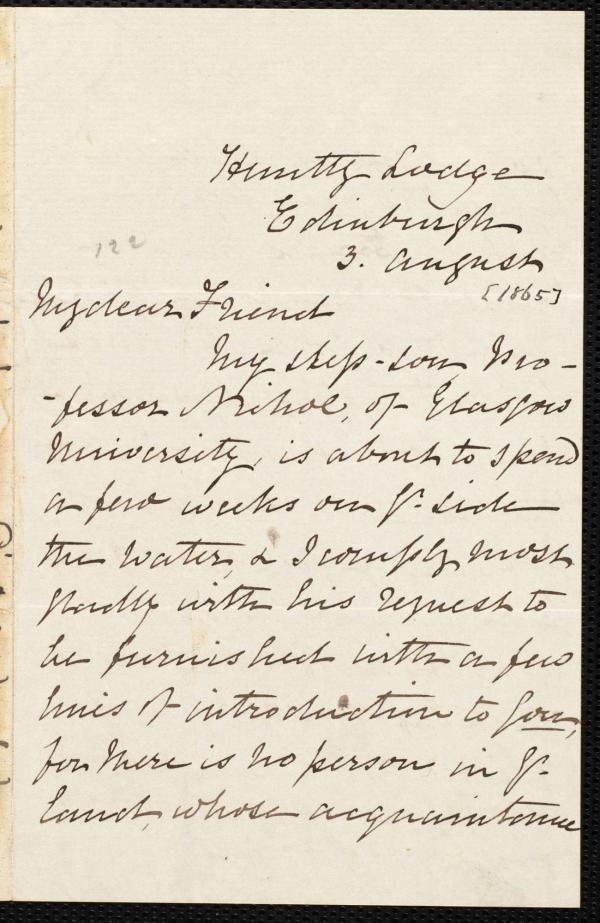 Huntly Lodge
Edinburgh
122
3. August
[1865]
My dear Friend
My step-son, Pro-
-fessor Nichol, of Glasgow
University, is about to spend
a few weeks on yr. side
the water, & I comply most
gladly with his request to
be furnished with a few
lines of introduction to you,
for there is no person in yr.
land, whose acquaintance